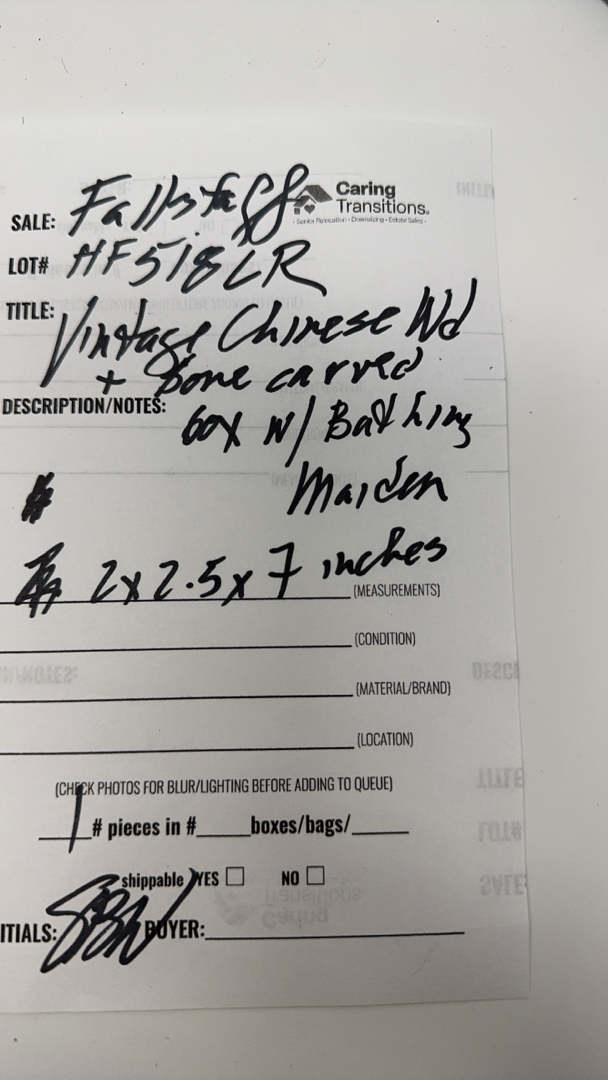 Caring
Transitions®
• Senior Relocation • Downsizing • Estate Sales •
SALE: Fallstaff
LOT# HF518LR
TITLE: Vintage Chinese Wd
+ Bone carved
DESCRIPTION/NOTES: box w/ Bathing
Maiden
2x2.5x7 inches
(MEASUREMENTS)
(CONDITION)
(MATERIAL/BRAND)
(LOCATION)
(CHECK PHOTOS FOR BLUR/LIGHTING BEFORE ADDING TO QUEUE)
1 # pieces in #____ boxes/bags/____
shippable YES ☐ NO ☐
ITIALS: SBW BUYER: